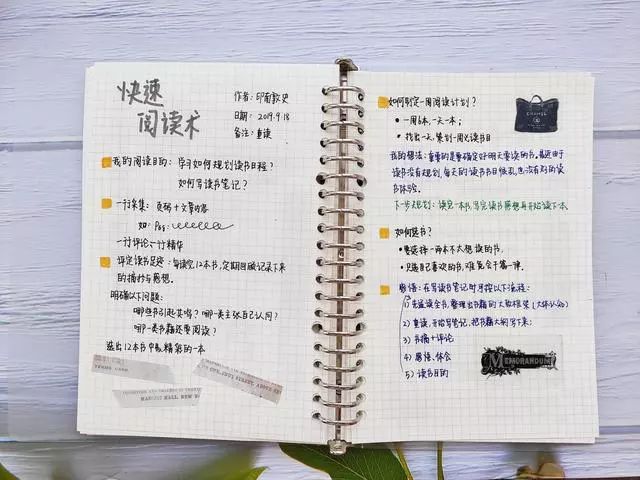 快速
阅读术
作者：印南敦史
日期：2019.9.18
备注：重读
我的阅读目的：学习如何规划读书日程？
如何写读书笔记？
一行采集：页码+文章内容
如：P25：
一行评论、一行精华
评定读书足迹：每读完12本书，定期回顾记录下来
的摘抄与感想。
明确以下问题：
哪些书引起共鸣？哪一类主张自己认同？
哪一类书籍还要阅读？
选出12本书中最精彩的一本
如何制定一周阅读计划？
• 一周6本，一天一本；
• 找出一天，策划一周必读书目
我的想法：重要的是要确定好明天要读的书。最近由于
读书没有规划，每天的读书书目很乱，也没有好的读
书体验。
下一步规划：读完一本书，写完读书感想再开始读下一本。
如何选书？
• 要选择一两本不太想读的书，
• 只选自己喜欢的书，难免会千篇一律。
思语：在写读书笔记时遵按以下流程：
1）先通读全书，整理出书籍的大致框架（大体认知）
2）重读，开始写笔记，把书籍大纲写下来；
3）书摘+评论
4）思语、体会
5）读书目的
CHANEL
MEMORANDUM